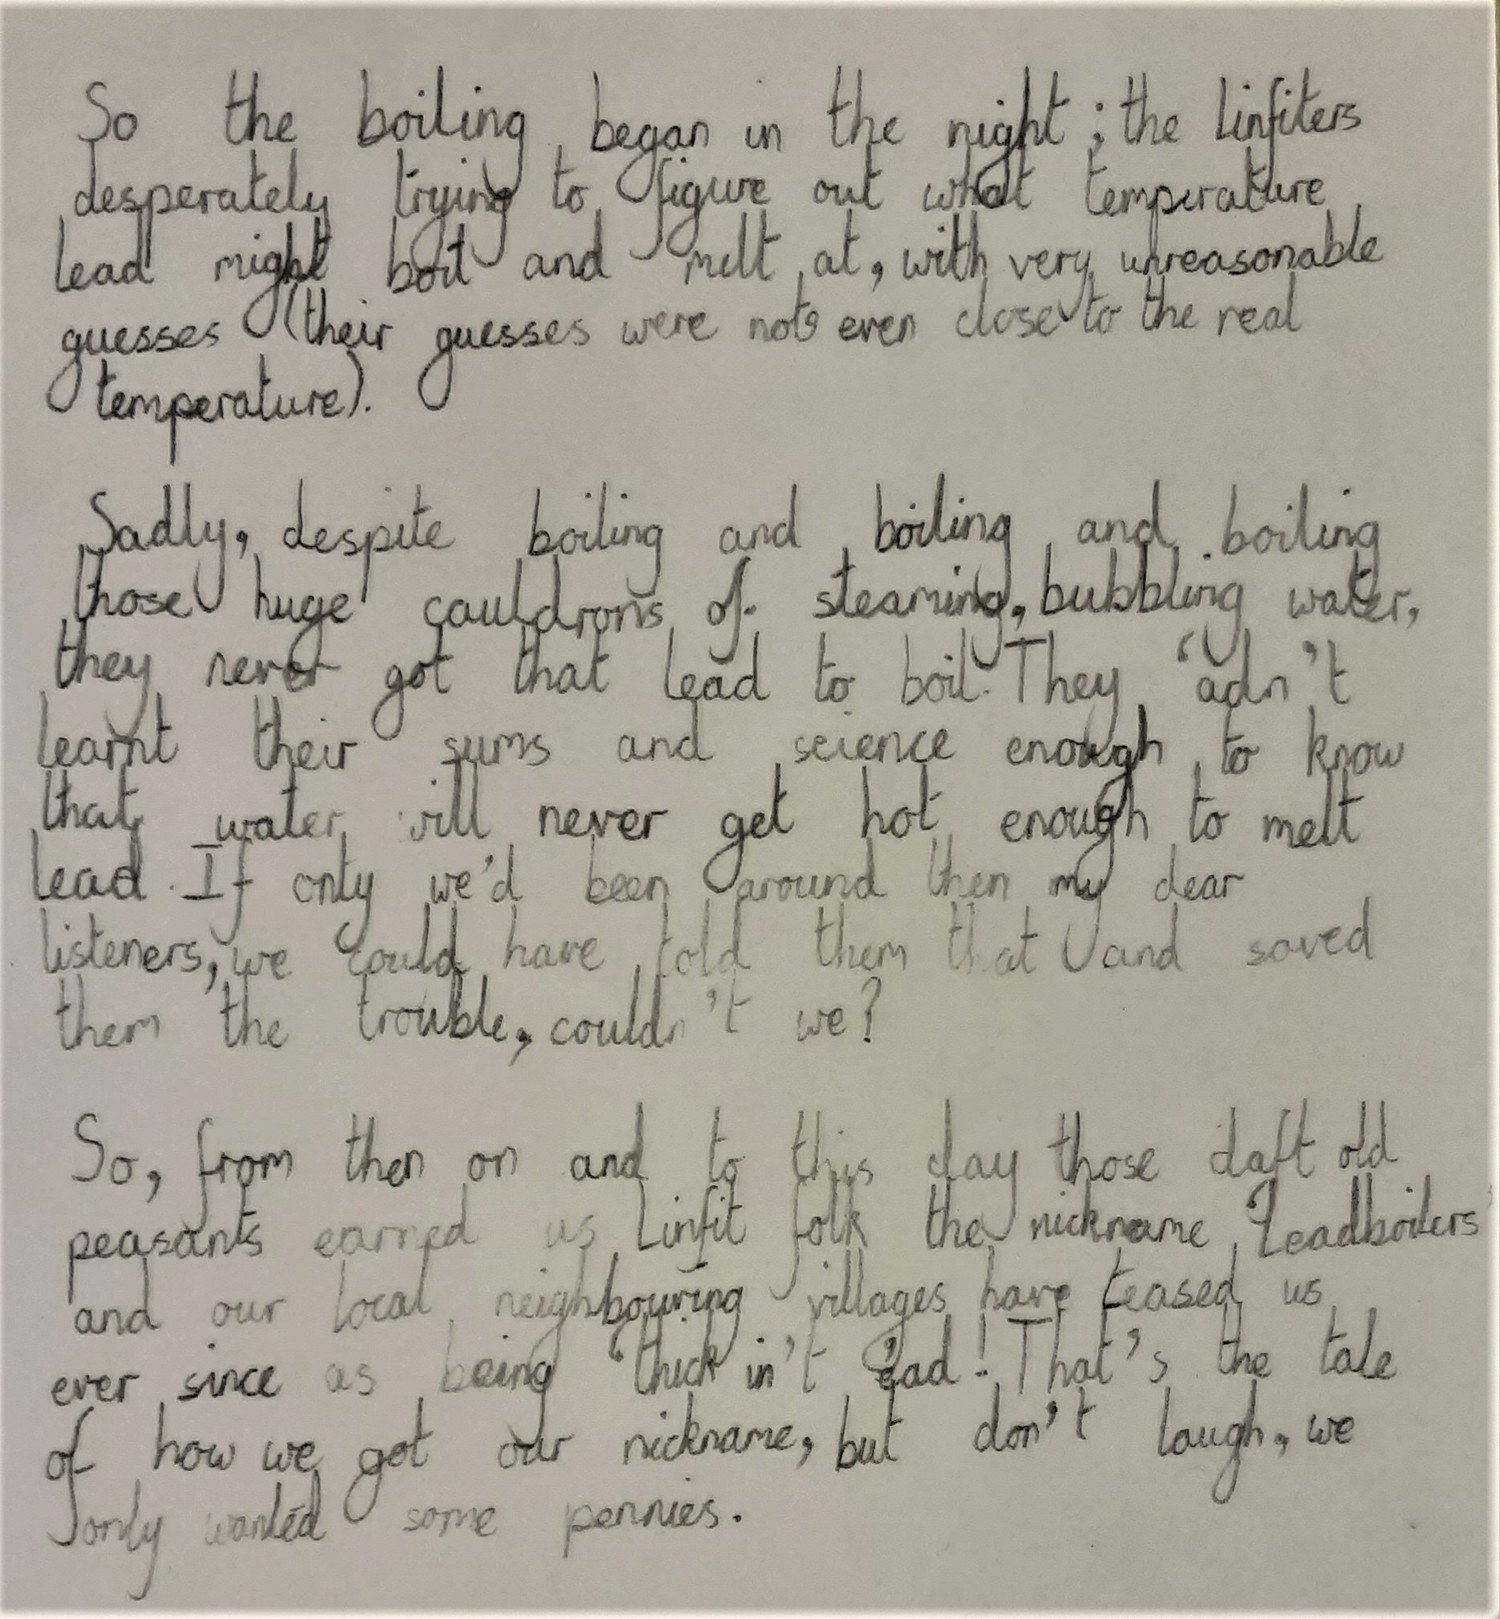 So the boiling began in the night; the Linfiters
desperately trying to figure out what temperature
lead might boil and melt at, with very unreasonable
guesses (their guesses were not even close to the real
temperature).
Sadly, despite boiling and boiling and boiling
those huge cauldrons of steaming, bubbling water,
they never got that lead to boil. They 'adn't
learnt their sums and science enough to know
that water will never get hot enough to melt
lead. If only we'd been around then my dear
listeners, we could have told them that and saved
them the trouble, couldn't we?
So, from then on and to this day those daft old
peasants earned us Linfit folk the nickname 'Leadboilers'
and our local neighbouring villages have teased us
ever since as being 'thick in't 'ead! That's the tale
of how we got our nickname, but don't laugh, we
only wanted some pennies.